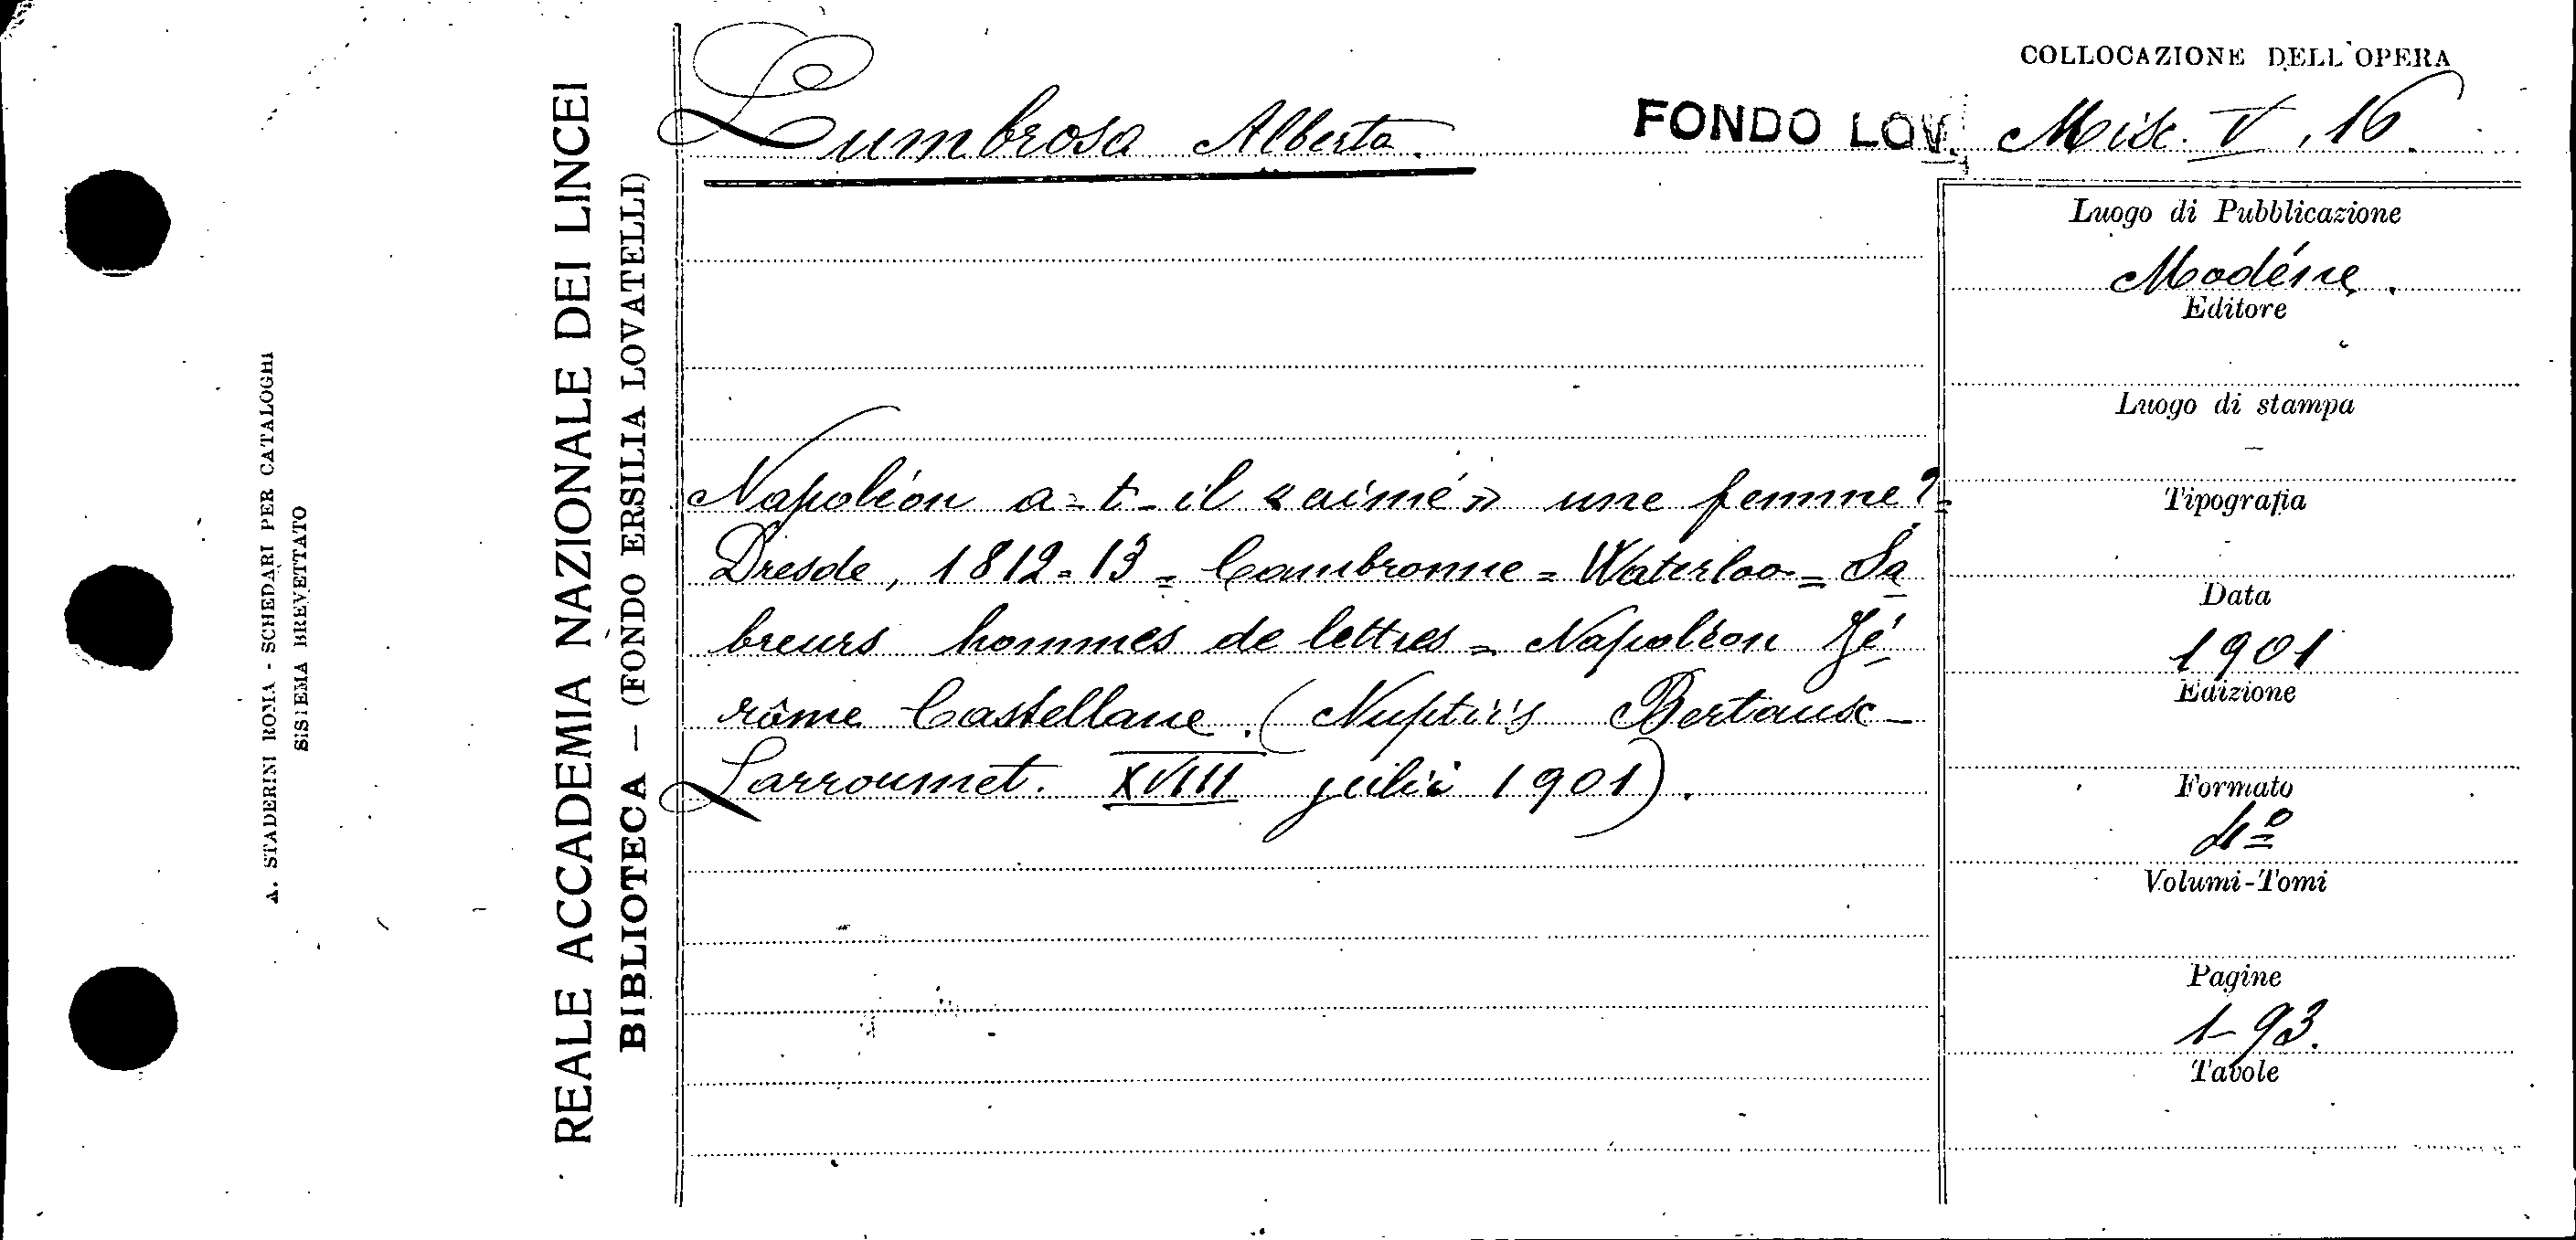 COLLOCAZIONE DELL'OPERA
Lumbroso Alberto.
FONDO LOV. Misc. V, 16.
Luogo di Pubblicazione
Modéne.
Editore
Luogo di stampa
–
Tipografia
-
Data
1901
Edizione
Formato
4º
Volumi-Tomi
Pagine
1-93.
Tavole
Napoléon a-t-il «aimé» une femme? =
Dresde, 1812-13 = Cambronne = Waterloo = Sa
breurs hommes de lettres = Napoléon Jé
rôme Castellane. (Nuptiis Bertaux-
Larroumet. XVIII julii 1901).
REALE ACCADEMIA NAZIONALE DEI LINCEI
BIBLIOTECA — (FONDO ERSILIA LOVATELLI)
A. STADERINI ROMA - SCHEDARI PER CATALOGHI
SISTEMA BREVETTATO